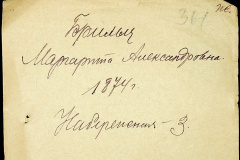 361
Бриль
Маргарита Александровна
1874 г.
Набережная - 3.